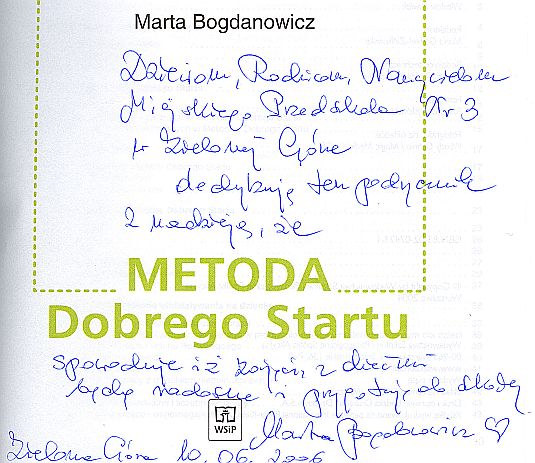 Marta Bogdanowicz
Dzieciom, Rodzicom, Nauczycielom
Miejskiego Przedszkola Nr 3
w Zielonej Górze
dedykuję ten podręcznik
z nadzieją, że
METODA
Dobrego Startu
spowoduje iż zajęcia z dziećmi
będą radosne i przygotują do szkoły
Marta Bogdanowicz
WSiP
Zielona Góra 10.06.2006